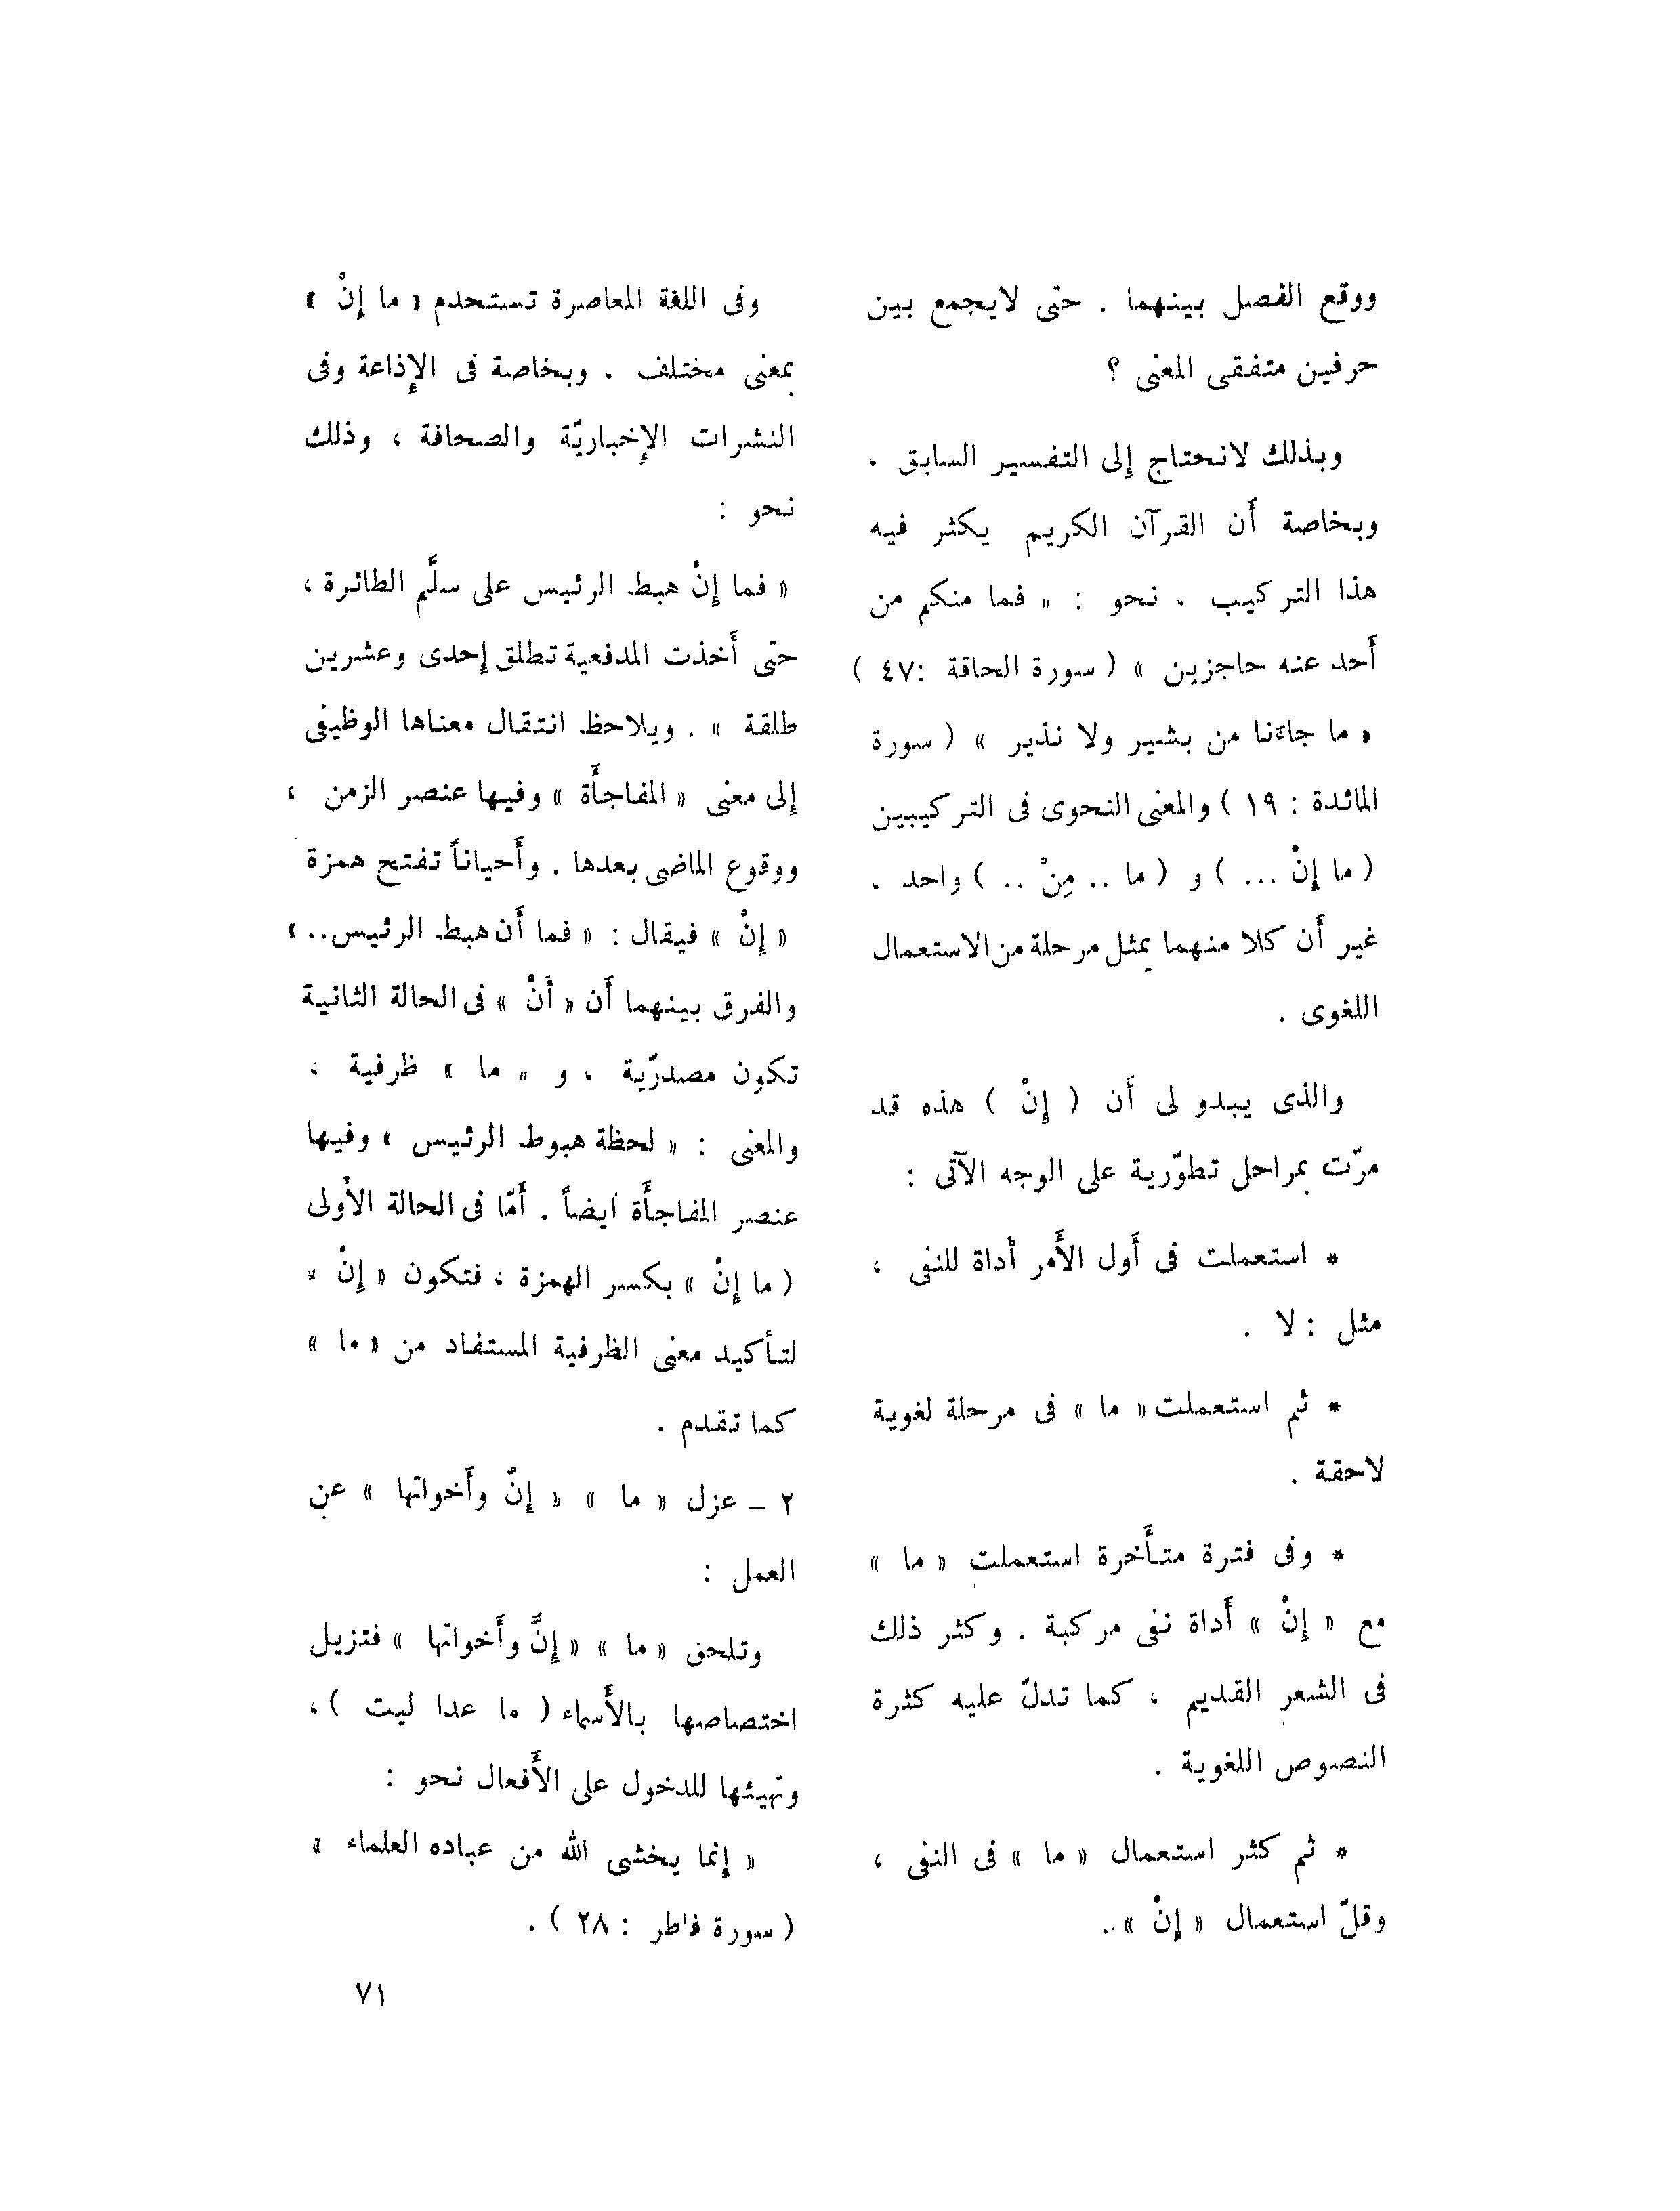 ووقع الفصل بينهما . حتى لايجمع بين
حرفين متفقى المعنى ؟
وبذلك لانحتاج إلى التفسير السابق .
وبخاصة أَن القرآن الكريم يكثر فيه
هذا التركيب . نحو : « فما منكم من
أَحد عنه حاجزين » ( سورة الحاقة :٤٧ )
« ما جاءَنا من بشير ولا نذير » ( سورة
المائدة : ١٩ ) والمعنى النحوى فى التركيبين
( ما إِنْ ... ) و ( ما .. مِنْ .. ) واحد .
غير أَن كلا منهما يمثل مرحلة من الاستعمال
اللغوى .
والذى يبدو لى أَن ( إِنْ ) هذه قد
مرّت بمراحل تطوّرية على الوجه الآتى :
* استعملت فى أَول الأَمر أداة للنفى ،
مثل : لا .
* ثم استعملت « ما » فى مرحلة لغوية
لاحقة .
* وفى فترة متأَخرة استعملت « ما »
مع « إِنْ » أَداة نفى مركبة . وكثر ذلك
فى الشعر القديم ، كما تدلّ عليه كثرة
النصوص اللغوية .
* ثم كثر استعمال « ما » فى النفى ،
وقلّ استعمال « إِنْ » .
وفى اللغة المعاصرة تستخدم « ما إِنْ »
بمعنى مختلف . وبخاصة فى الإِذاعة وفى
النشرات الإِخباريّة والصحافة ، وذلك
نحو :
« فما إِنْ هبط الرئيس على سلَّم الطائرة ،
حتى أَخذت المدفعية تطلق إِحدى وعشرين
طلقة » . ويلاحظ انتقال معناها الوظيفى
إِلى معنى « المفاجأَة » وفيها عنصر الزمن ،
ووقوع الماضى بعدها . وأَحياناً تفتح همزة
« إِنْ » فيقال : « فما أَن هبط الرئيس.. »
والفرق بينهما أَن « أَنْ » فى الحالة الثانية
تكون مصدرّية ، و « ما » ظرفية ،
والمعنى : « لحظة هبوط الرئيس » وفيها
عنصر المفاجأَة أيضاً . أَمّا فى الحالة الأولى
( ما إِنْ » بكسر الهمزة ، فتكون « إِنْ »
لتأكيد معنى الظرفية المستفاد من « ما »
كما تقدم .
٢ – عزل « ما » « إِنّ وأَخواتها » عن
العمل :
وتلحق « ما » « إِنَّ وأَخواتها » فتزيل
اختصاصها بالأَسماء ( ما عدا ليت ) ،
وتهيئها للدخول على الأَفعال نحو :
« إِنما يخشى الله من عباده العلماء »
( سورة فاطر : ٢٨ ) .
٧١